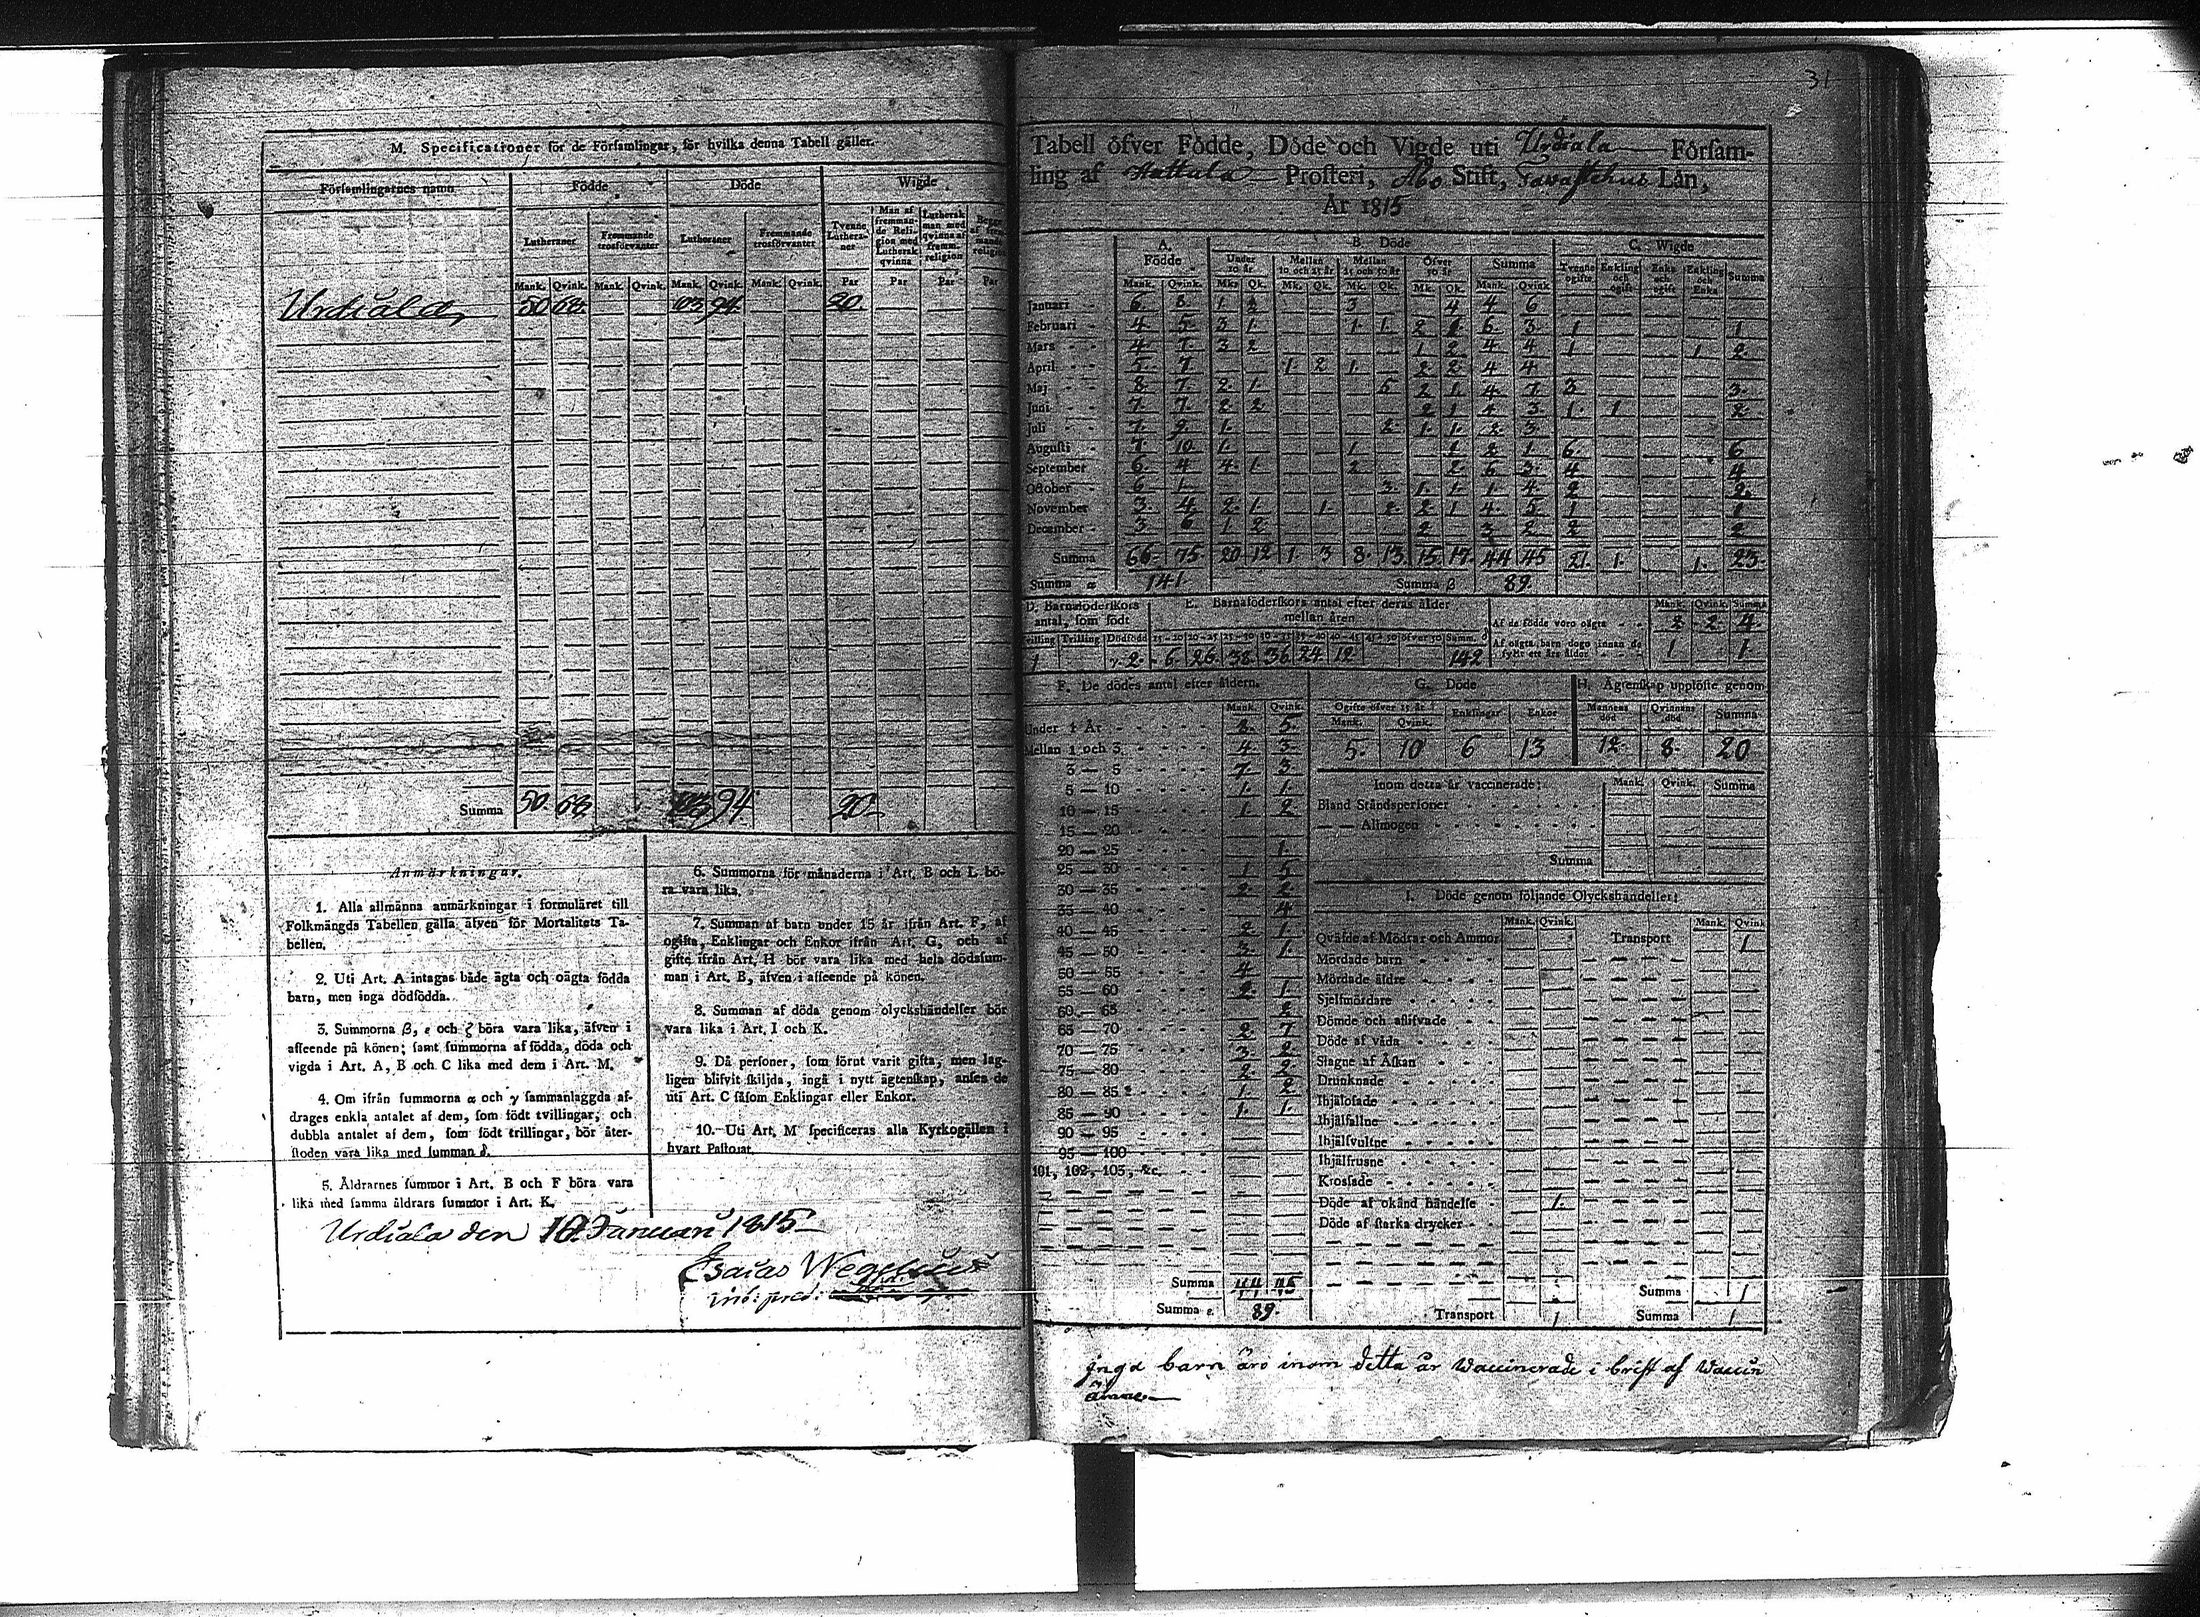 31
M. Specificationer för de Församlingar, för hvilka denna Tabell gäller.
Församlingarnes namn Födde Döde Wigde
Lutheraner Fremmande trosförvanter Lutheraner Fremmande trosförvanter Tvenne Lutheraner Man af fremmande Religion med Luthersk qvinna Luthersk man med qvinna af fremm. religion
Mank. Qvink. Mank. Qvink. Mank. Qvink. Mank. Qvink. Par Par Par Par
Urdiala 50 68. 103 94. 20.
Summa 50. 68. 103 94 20
Anmärkningar.
1. Alla allmänna anmärkningar i formuläret till
Folkmängds Tabellen gälla äfven för Mortalitets Ta-
bellen.
2. Uti Art. A intagas både ägta och oägta födda
barn, men inga dödfödda.
3. Summorna β, ε och ζ böra vara lika, äfven i
afseende på könen; samt summorna af födda, döda och
vigda i Art. A, B och C lika med dem i Art. M.
4. Om ifrån summorna α och γ sammanlaggda af-
drages enkla antalet af dem, som födt tvillingar, och
dubbla antalet af dem, som födt trillingar, bör åter-
stoden vara lika med summan δ.
5. Åldrarnes summor i Art. B och F böra vara
lika med samma åldrars summor i Art. K.
6. Summorna för månaderna i Art. B och L bö-
ra vara lika.
7. Summan af barn under 15 år ifrån Art. F, af
ogifta, Enklingar och Enkor ifrån Art. G, och af
gifte ifrån Art. H bör vara lika med hela dödssum-
man i Art. B, äfven i afseende på könen.
8. Summan af döda genom olyckshändelser bör
vara lika i Art. I och K.
9. Då personer, som förut varit gifta, men lag-
ligen blifvit skiljda, ingå i nytt ägtenskap, anses de
uti Art. C såsom Enklingar eller Enkor.
10. Uti Art. M specificeras alla Kyrkogällen i
hvart Pastorat.
Urdiala den 10 Januari 1815
Esaias Wegelius
Tabell öfver Födde, Döde och Vigde uti Urdiala Församling
af Hattula Prosteri, Åbo Stift, Tavastehus Län,
År 1815
A. Födde B. Döde C. Wigde
Under 10 år Mellan 10 och 25 år Mellan 25 och 50 år Öfver 50 år Summa Tvenne ogifte Enkling och ogift Enka och ogift Enkling och Enka Summa
Mank. Qvink. Mk. Qk. Mk. Qk. Mk. Qk. Mk. Qk. Mank. Qvink
Januari 6. 8. 1. 2 3 4 4 6
Februari 4 5 3 1. 1. 1. 2 1 6. 3. 1 1
Mars 4 7. 3 2 1 2 4 4 1 1 2.
April 5. 7 1. 2 1. 2 2 4 4
Maj 8. 7. 2. 1. 5 2 1. 4. 7. 3 3.
Juni 7. 7. 2 2 2 1 4 3 1. 1 2.
Juli 7. 2. 1. 2 1. 1. 2 3
Augusti 7. 10. 1. 1 1 2 1 6. 6
September 6. 4 4. 1. 2 2 6 3. 4 4
October 6 1. 3. 1. 1. 1. 4. 2 2.
November 3. 4. 2. 1. 1. 2. 2 1 4. 5 1 1
December 3 6 1. 2. 2 3 2 2 2
Summa 66. 75. 20 12 1. 3 8. 13. 15. 17. 44 45 21. 1. 1. 23.
Summa α 141. Summa β 89.
D. Barnaföderskors antal, som födt
E. Barnaföderskors antal efter deras ålder mellan åren
Trilling Dödfödd 15-20 20-25 25-30 30-35 35-40 40-45 45-50 öfver 50 Samm. δ
1 2. 6. 26. 38. 36. 24. 12. 142
Mank. Qvink. Summa
Af de födde voro oägta 2 2 4.
Af oägta barn dogo innan de fyllt ett års ålder 1 1.
F. De dödes antal efter åldern.
Mank. Qvink.
Under 1 År 8. 5.
Mellan 1 och 3. 4 3.
3 — 5 7 3
5 — 10 1. 1.
10 — 15 1 2
15 — 20
20 — 25 1.
25 — 30 1 5
30 — 35 2. 2.
35 — 40 4
40 — 45 2 1
45 — 50 3. 1.
50 — 55 4
55 — 60 2. 1.
60 — 65 2
65 — 70 2 7
70 — 75 3. 2
75 — 80 2. 2.
80 — 85 1. 2
85 — 90 1. 1.
90 — 95
95 — 100
101, 102, 103, &c.
Summa 44 45
Summa ε. 89.
G. Döde
Ogifte öfver 15 år Enklingar Enkor
Mank. Qvink.
5. 10 6 13
H. Ägtenskap upplöste genom
Mannens död Qvinnans död Summa
12. 8. 20
Inom detta år vaccinerade: Mank. Qvink. Summa
Bland Ståndspersoner
— — Allmogen
Summa
I. Döde genom följande Olyckshändelser:
Mank. Qvink. Mank. Qvink
Qväfde af Mödrar och Ammor Transport 1
Mördade barn
Mördade äldre
Sjelfmördare
Dömde och aflifvade
Döde af våda
Slagne af Åskan
Drunknade
Ihjälosade
Ihjälfallne
Ihjälsvultne
Ihjälfrusne
Krossade
Döde af okänd händelse 1.
Döde af starka drycker
Summa 1
Transport 1 Summa 1
Inga barn äro inom detta år Waccinerade i brist af Waccin
ämne